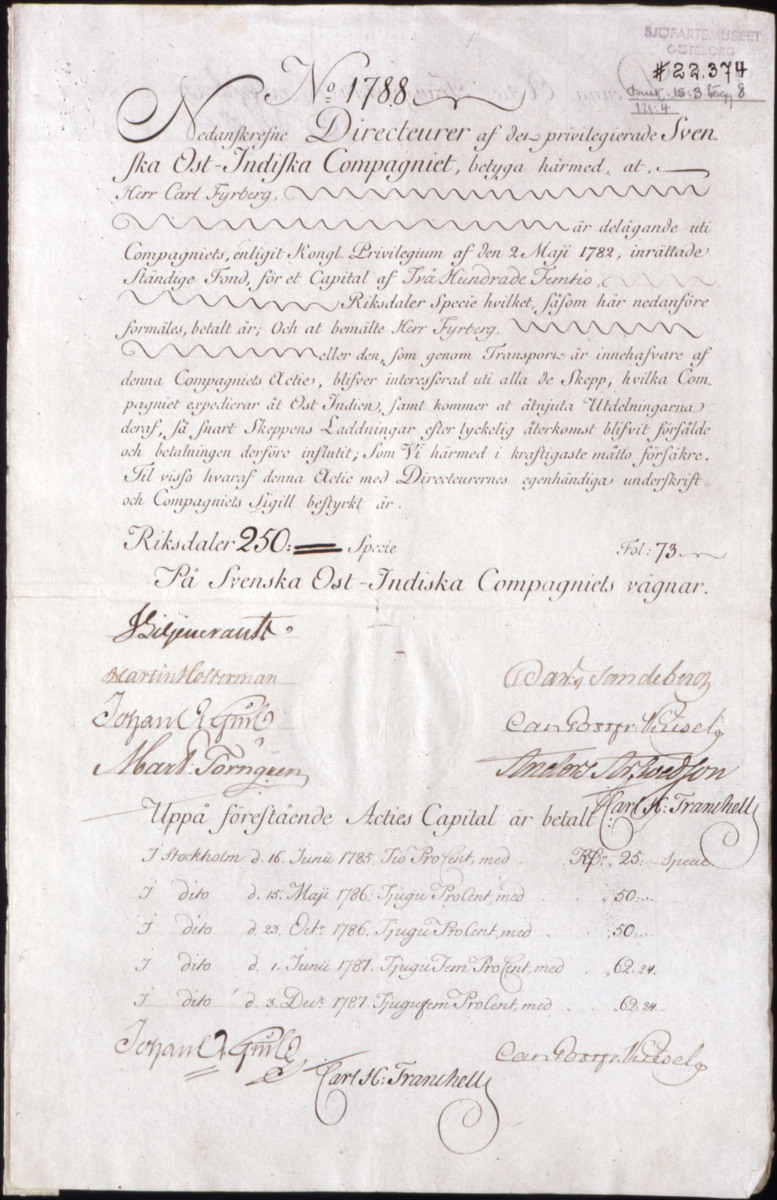 SJÖFARTSMUSEET
GÖTEBORG
#22.374
15:3 8
No 1788
Nedanskrefne Directeurer af det privilegierade Sven-
ska Ost-Indiska Compagniet, betyga härmed, at
Herr Carl Fyrberg.
är delägande uti
Compagniets, enligit Kongl. Privilegium af den 2 Maji 1782, inrättade
Ständige Fond, för et Capital af Två Hundrade Femtio.
Riksdaler Specie hvilket, såsom här nedanföre
formäles, betalt är; Och at bemälte Herr Fyrberg.
eller den, som genom Transport är innehafvare af
denna Compagniets Actie, blifver interesserad uti alla de Skepp, hvilka Com-
pagniet expedierar åt Ost Indien, samt kommer at åtnjuta Utdelningarna
deraf, så snart Skeppens Laddningar efter lyckelig återkomst blifvit försålde
och betalningen derföre influtit; Som Vi härmed i kraftigaste måtto försäkre.
Til visso hvaraf denna Actie med Directeurernes egenhändiga underskrift
och Compagniets Sigill bestyrkt är.
Riksdaler 250: Specie Fol: 73
På Svenska Ost-Indiska Compagniets vägnar.
Martin Holterman
Mart. Törngren Anders Arfvedson
Carl H: Tranchell
Uppå förestående Acties Capital är betalt:
I Stockholm d. 16. Junii 1785. Tio ProCent, med 25: Specie
I dito d. 15. Maji 1786. Tjugu ProCent, med 50:
I dito d. 23. Octr. 1786. Tjugu ProCent, med 50:
I dito d. 1. Junii 1787. Tjugu Fem ProCent, med 62.24.
I dito d. 3. Decr. 1787. Tjugufem ProCent, med 62.24.
Carl H: Tranchell